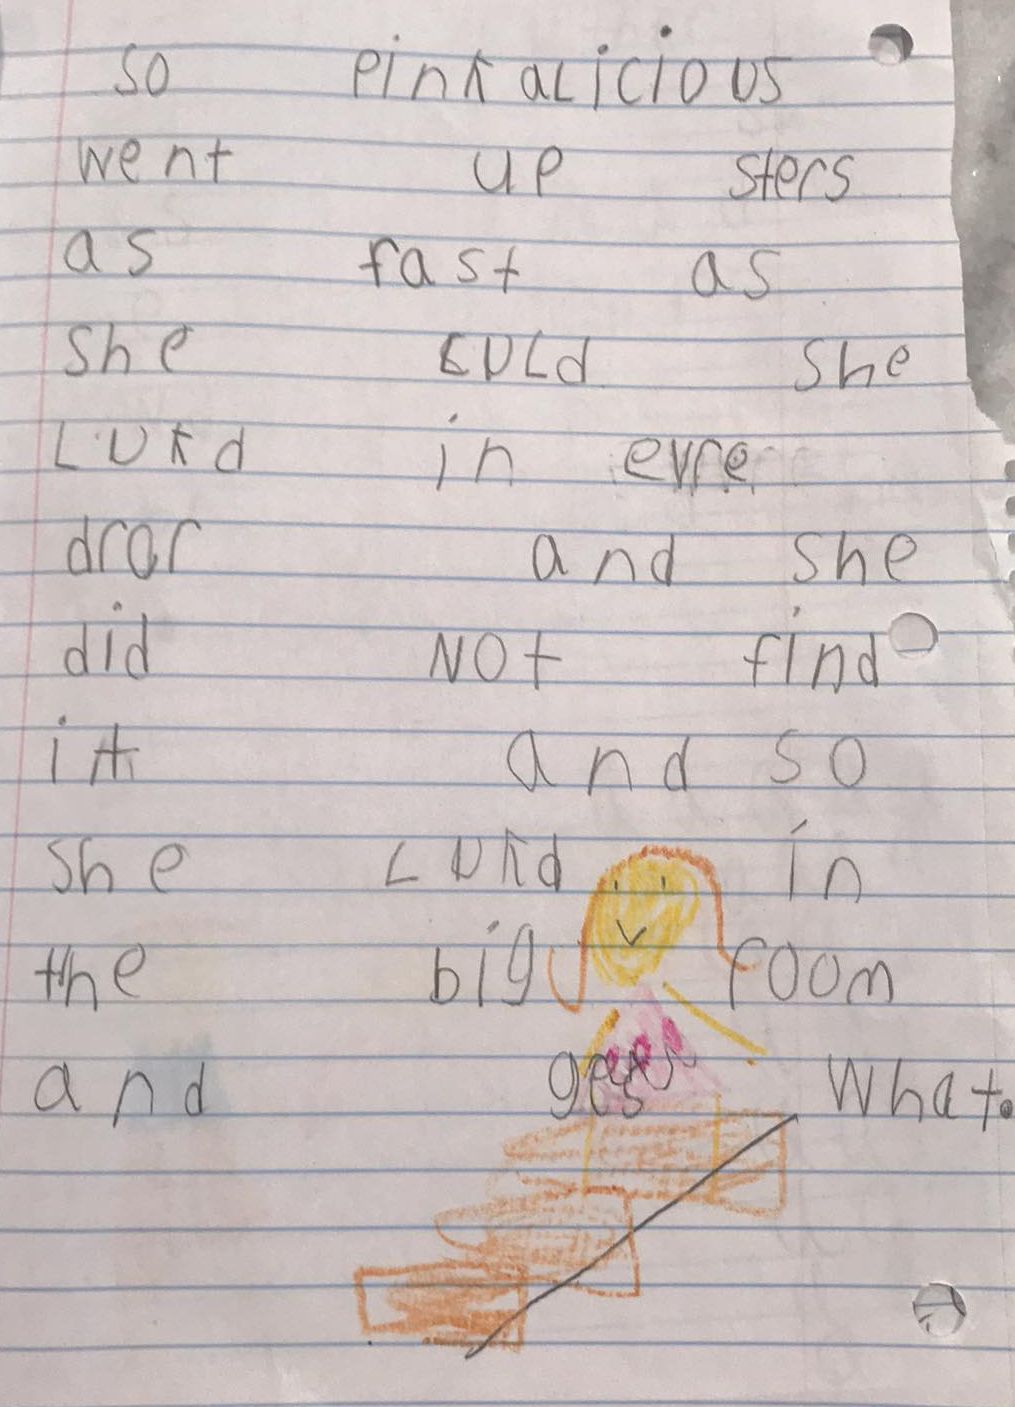 so pinkalicious
went up sters
as fast as
she culd she
Lukd in evre
dror and she
did Not find
it and so
she Lukd in
the big room
and ges what.